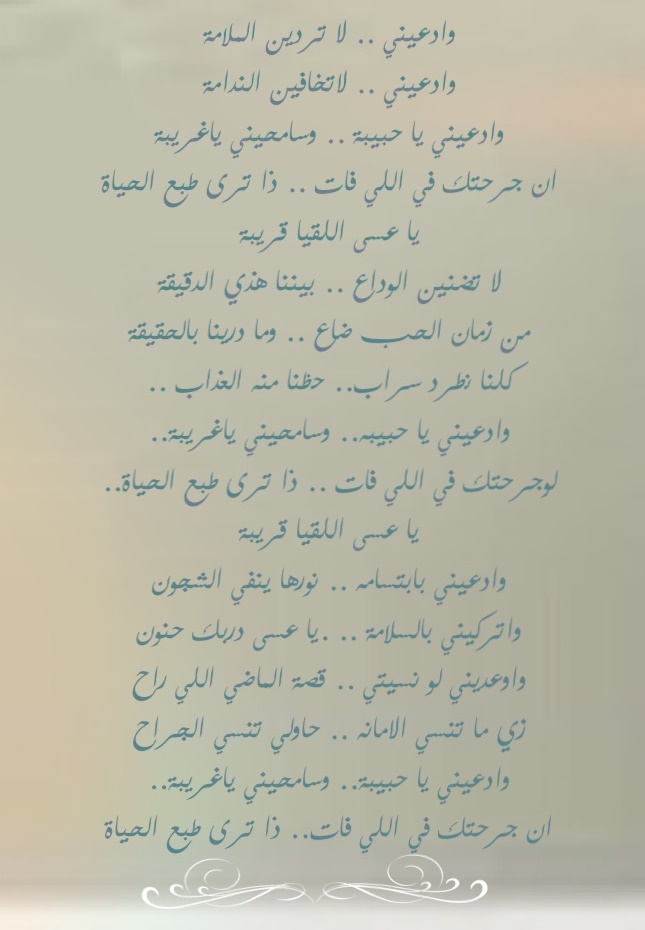 وادعيني .. لا تردين الملامة
وادعيني .. لاتخافين الندامة
وادعيني يا حبيبة .. وسامحيني ياغريبة
ان جرحتك في اللي فات .. ذا ترى طبع الحياة
يا عسى اللقيا قريبة
لا تضنين الوداع .. بيننا هذي الدقيقة
من زمان الحب ضاع .. وما درينا بالحقيقة
كلنا نطرد سراب.. حظنا منه العذاب ..
وادعيني يا حبيبه.. وسامحيني ياغريبة..
لوجرحتك في اللي فات .. ذا ترى طبع الحياة..
يا عسى اللقيا قريبة
وادعيني بابتسامه .. نورها ينفي الشجون
واتركيني بالسلامة .. .يا عسى دربك حنون
واوعديني لو نسيتي .. قصة الماضي اللي راح
زي ما تنسي الامانه .. حاولي تنسي الجراح
وادعيني يا حبيبة.. وسامحيني ياغريبة..
ان جرحتك في اللي فات.. ذا ترى طبع الحياة